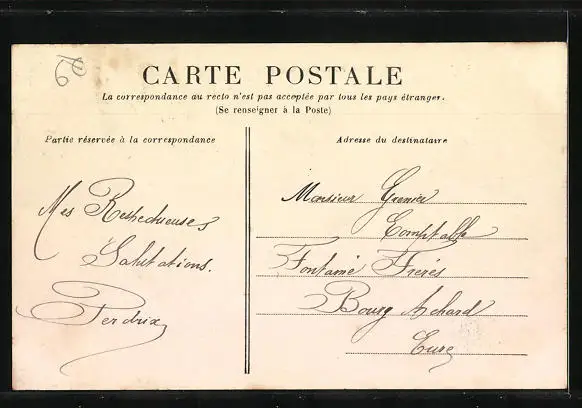 CARTE POSTALE
La correspondance au recto n'est pas acceptée par tous les pays étranger.
(Se renseigner à la Poste)
Partie réservée à la correspondance
Mes Respectueuses
Salutations.
Perdrix
Adresse du destinataire
Monsieur Grenier
Comptable
Fontaine Frères
Bourg Achard
Eure